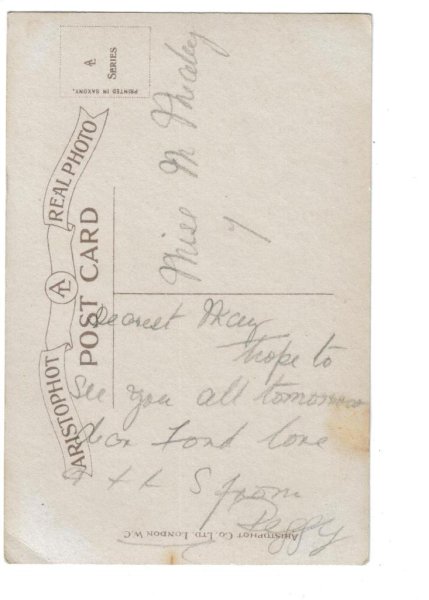 AL
SERIES
PRINTED IN SAXONY.
ARISTOPHOT AL REAL PHOTO
POST CARD
Miss M
Dearest May
hope to
see you all tomorrow
dear Fond love
from
Peggy
ARISTOPHOT CO. LTD. LONDON W.C.